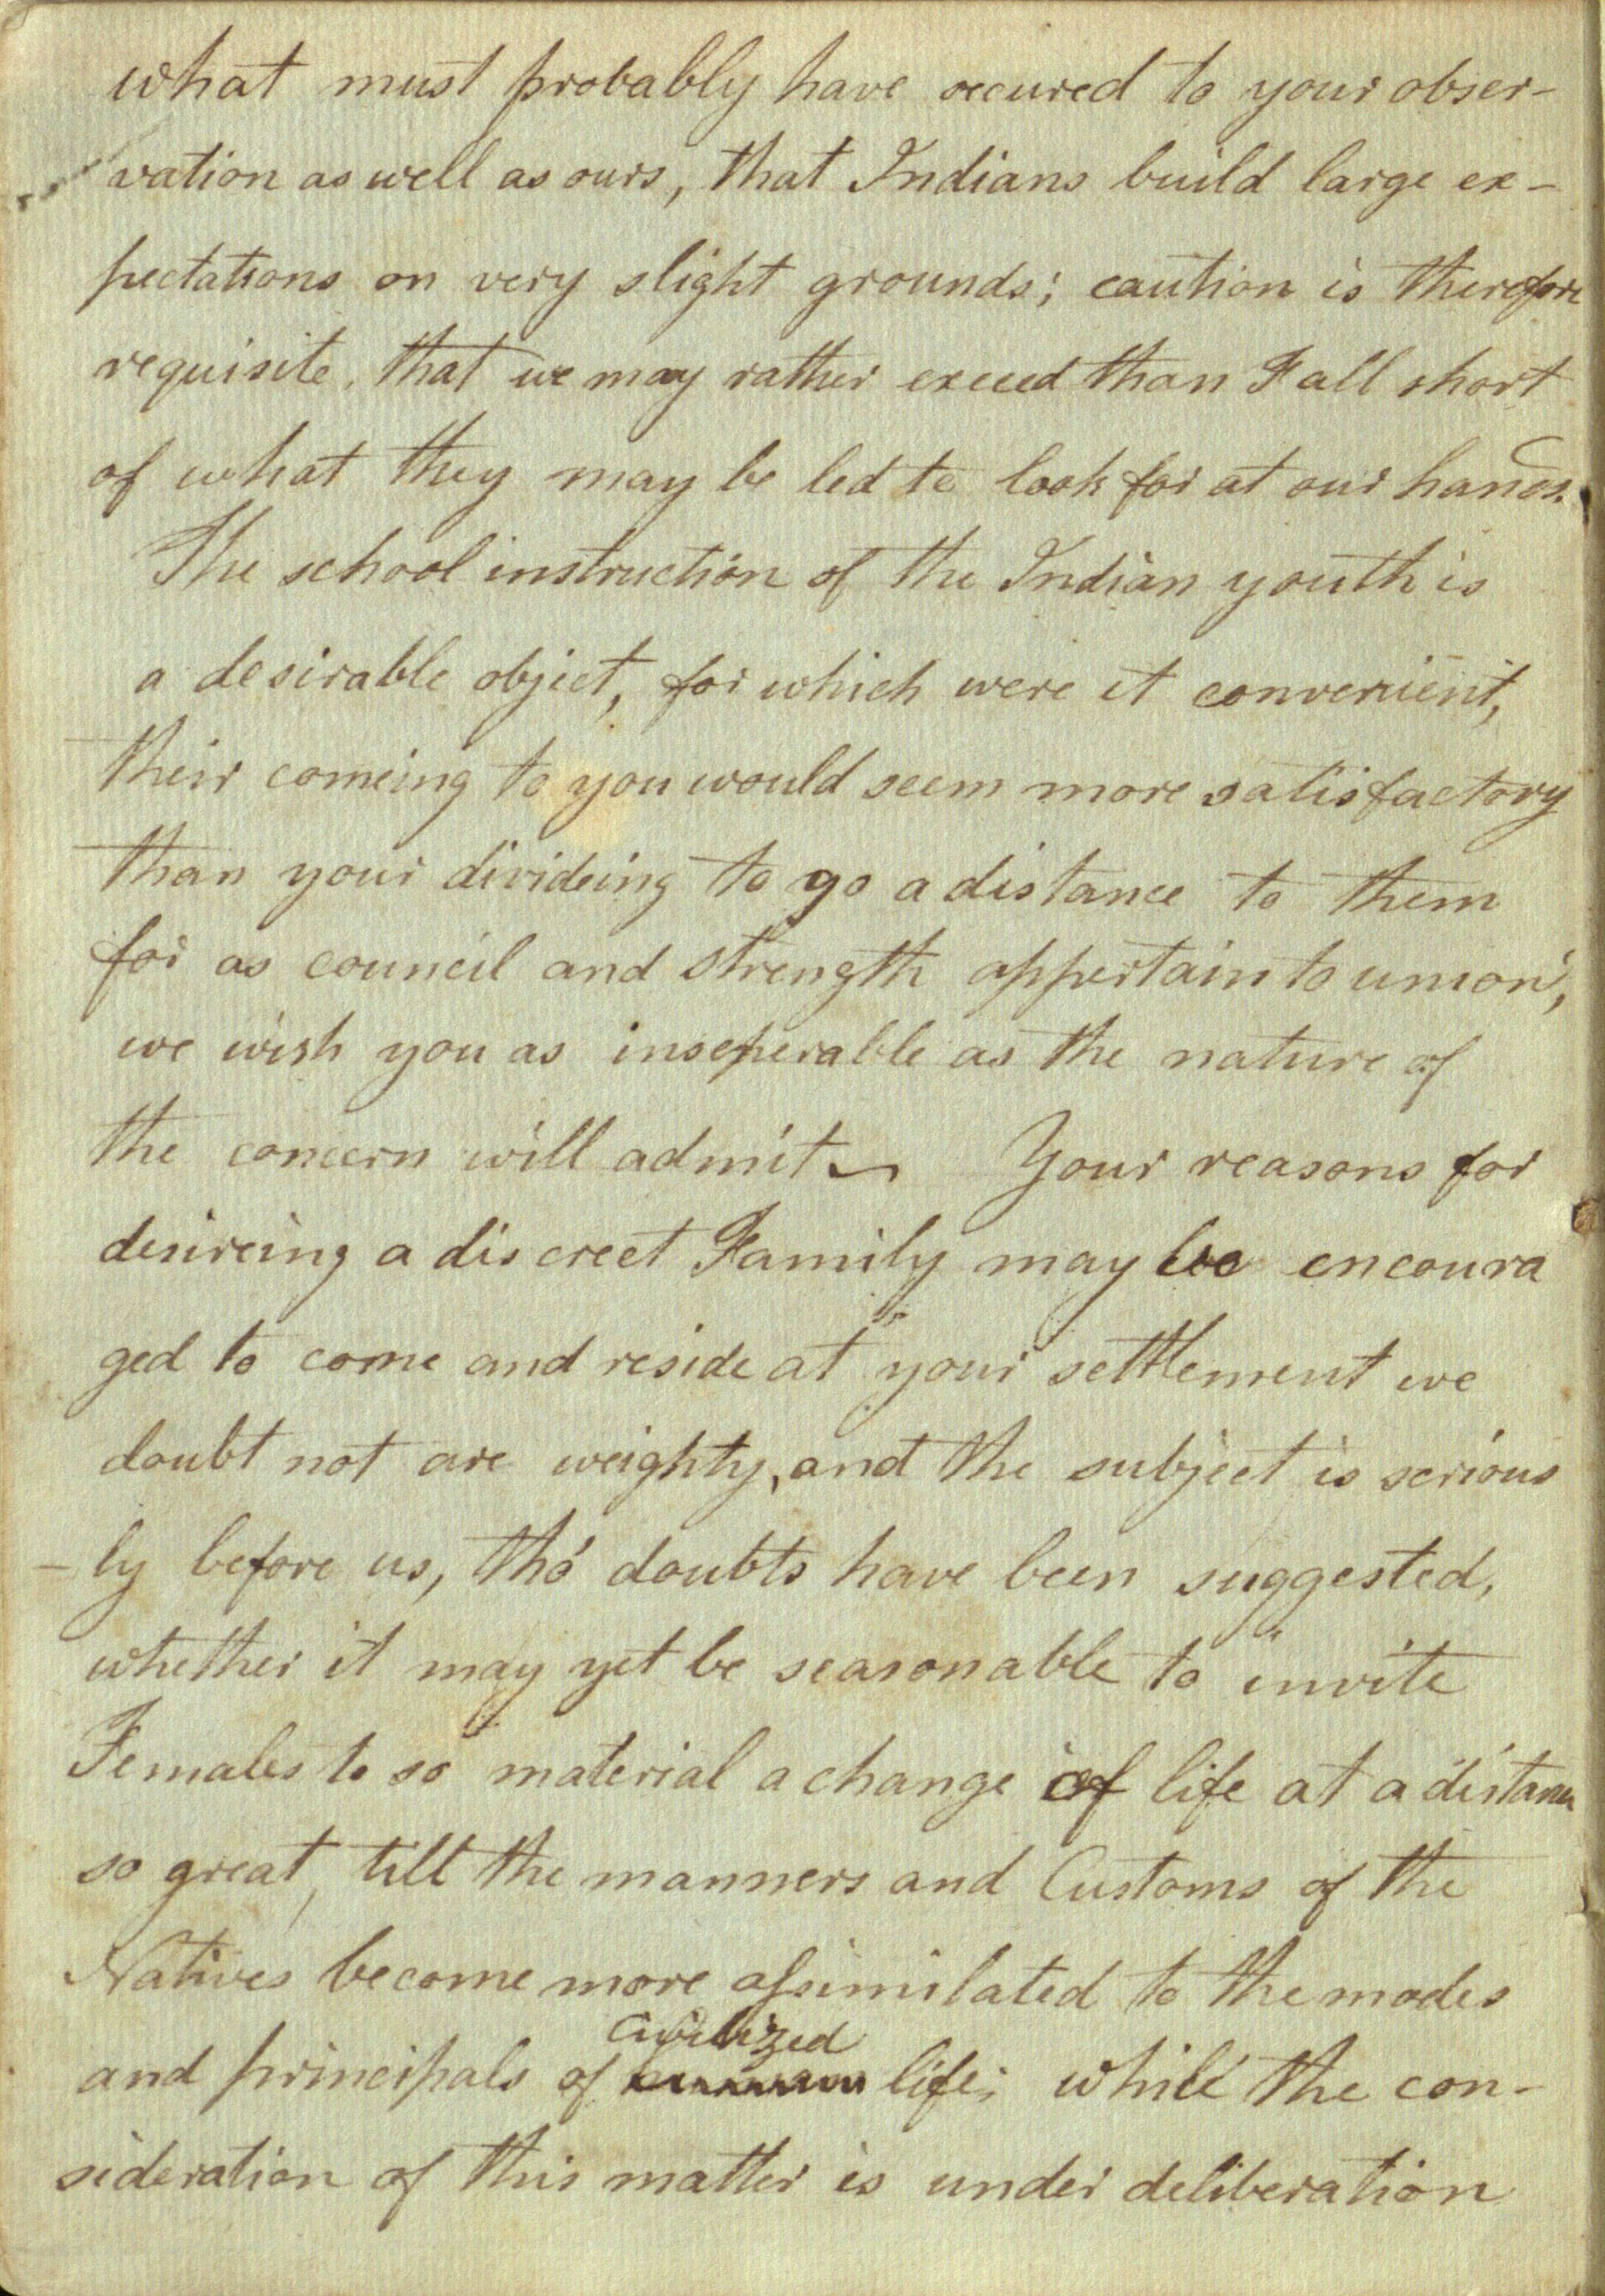 what must probably have occured to your obser-
vation as well as ours, that Indians build large ex-
pectations on very slight grounds; caution is therefore
requisite, that we may rather exceed than Fall short
of what they may be led to look for at our hands.
The school instruction of the Indian youth is
a desirable object, for which were it convenient,
their comeing to you would seem more satisfactory
than your divideing to go a distance to them
for as council and strength appertain to union,
we wish you as inseperable as the nature of
the concern will admit Your reasons for
desireing a discreet Family may be encoura
ged to come and reside at your settlement we
doubt not are weighty, and the subject is serious
-ly before us, tho' doubts have been suggested,
whether it may yet be seasonable to invite
Females to so material a change of life at a distance
so great, till the manners and Customs of the
Natives become more assimilated to the modes
Civilized
and principals of life; while the con-
sideration of this matter is under deliberation